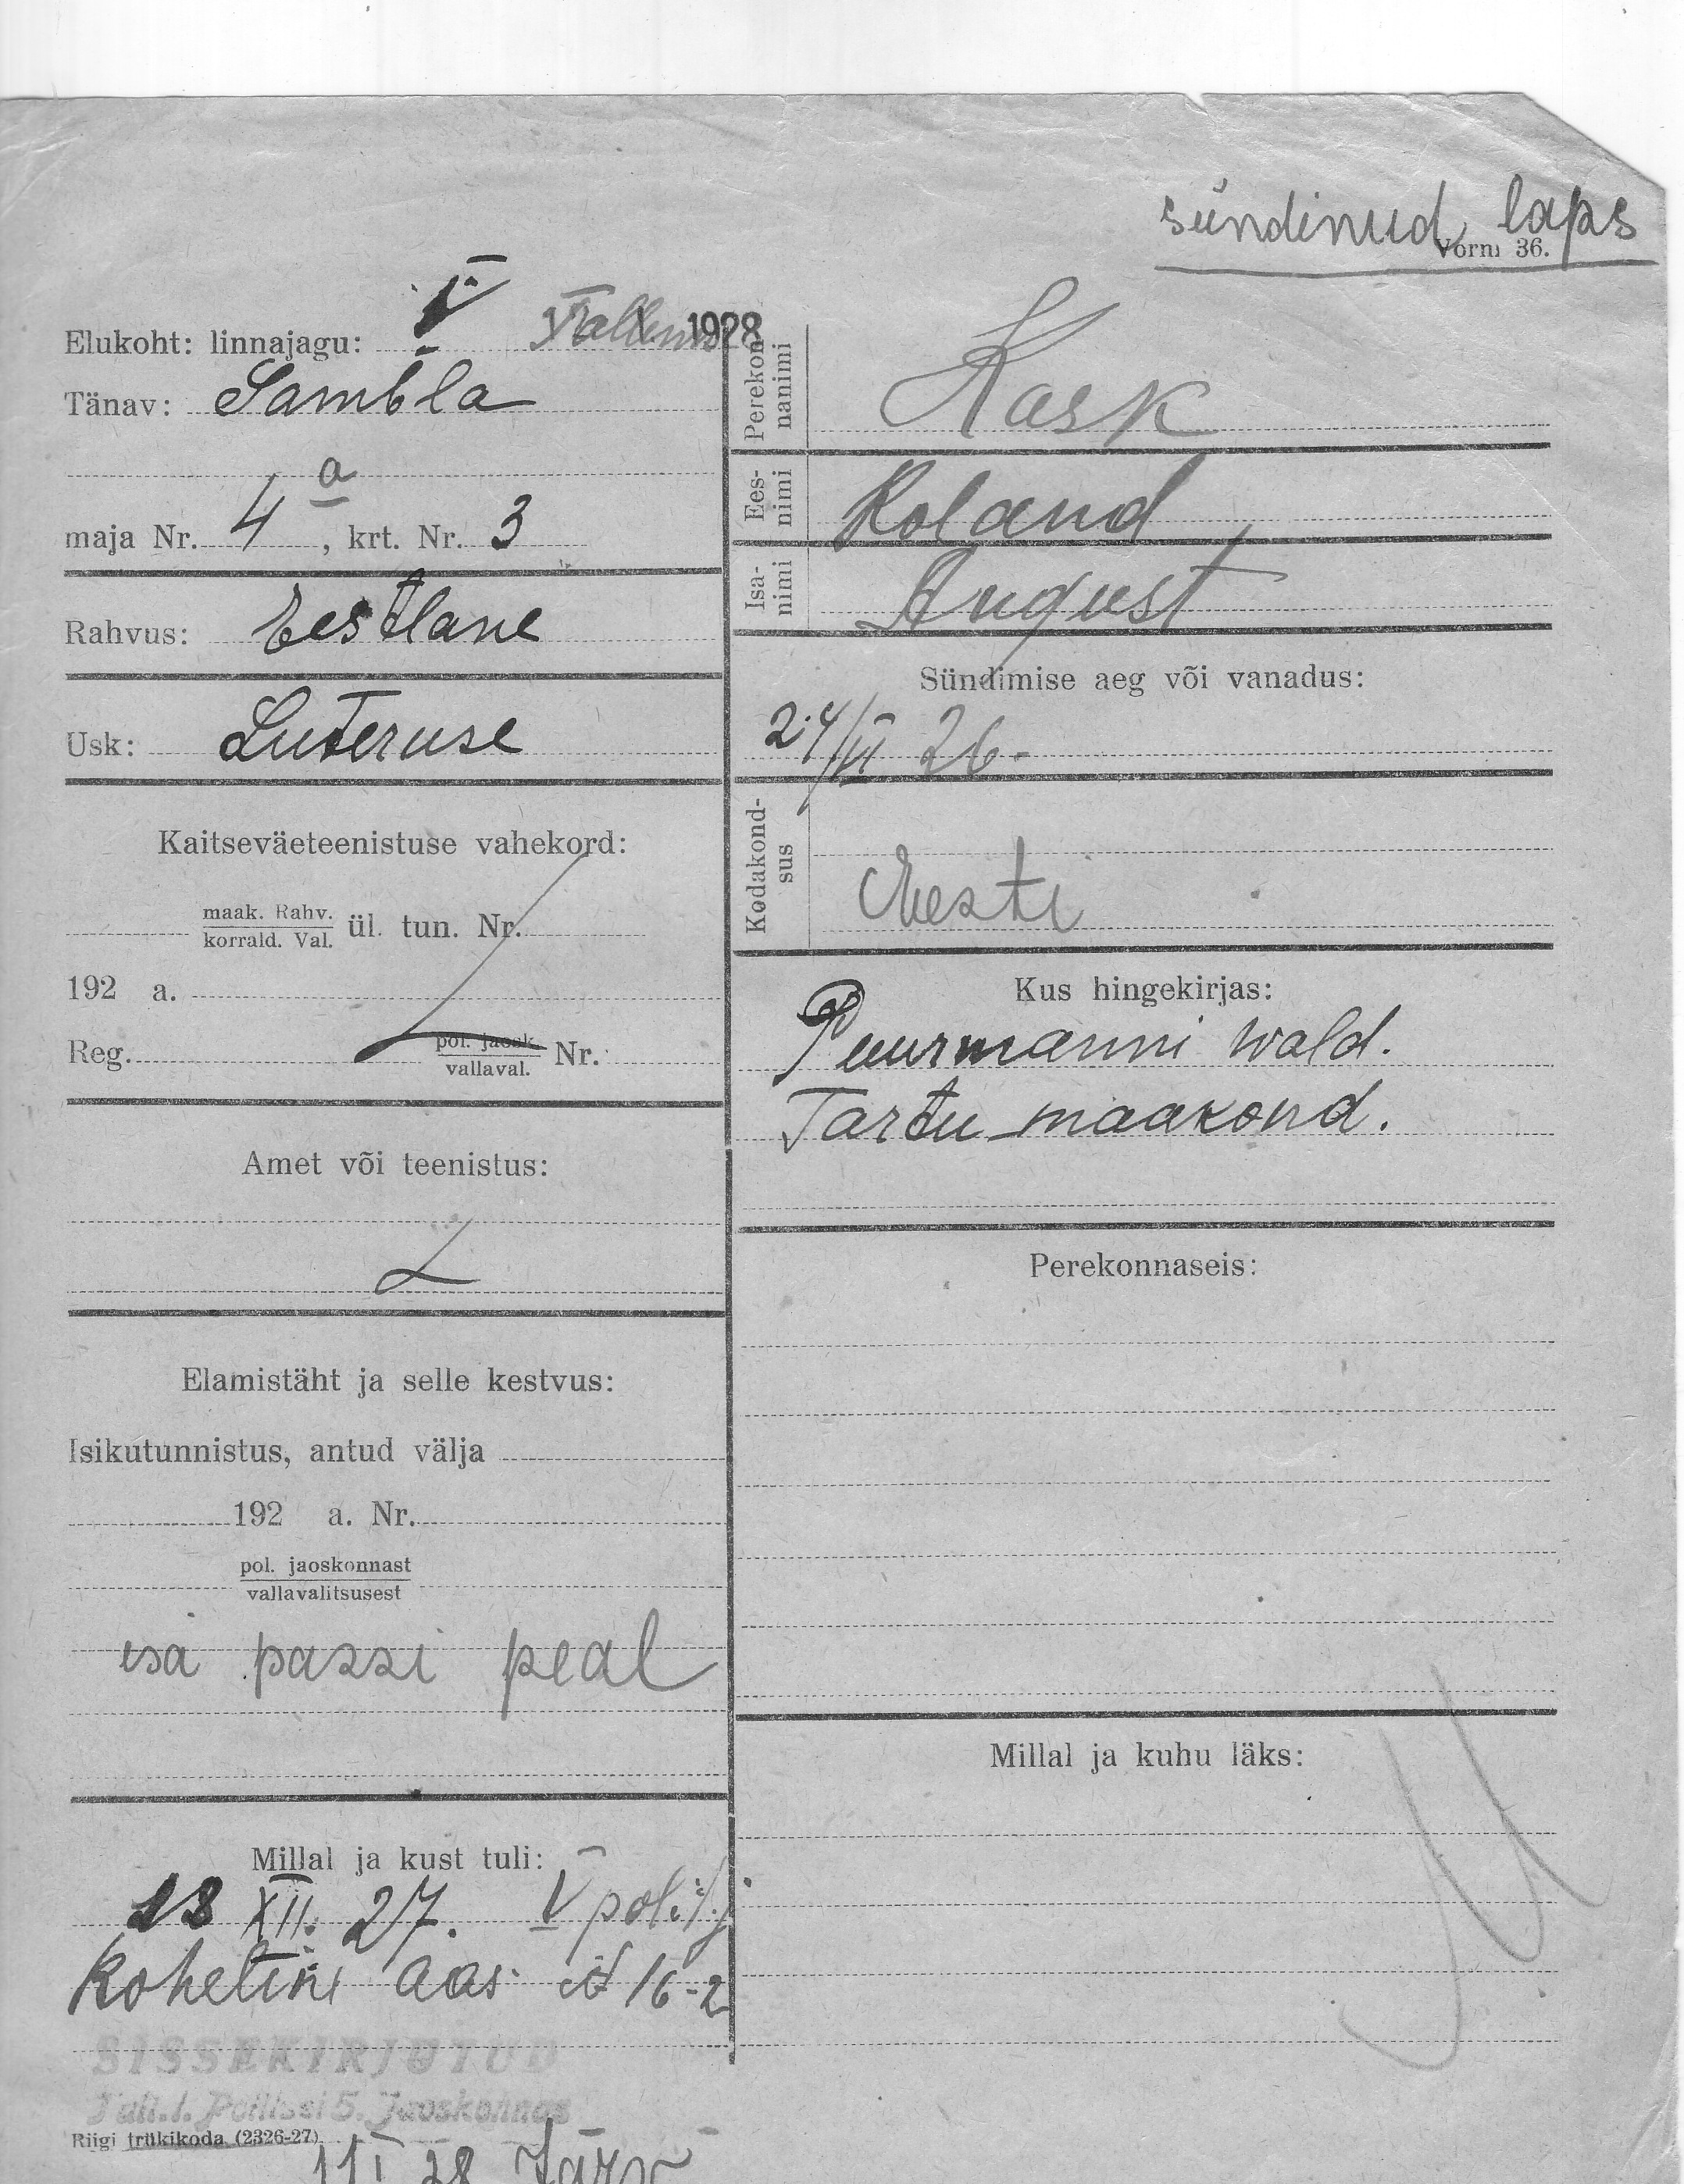 sündinud laps
Vorm 36.
Elukoht: linnajagu: V 1928
Tänav: Sambla
a
maja Nr. 4, krt. Nr. 3
Rahvus: Eestlane
Usk: Luteruse
Kaitseväeteenistuse vahekord:
maak. Rahv.
korrald. Val. ül. tun. Nr.
192 a.
Reg. pol. jaosk.
vallaval. Nr.
Amet või teenistus:
Elamistäht ja selle kestvus:
Isikutunnistus, antud välja
192 a. Nr.
pol. jaoskonnast
vallavalitsusest
isa passi peal
Millal ja kust tuli:
18 XII. 27. V pol. j.
Koheliku aas 16-2
SISSEKIRJUTUD
Tall. l. Politsei 5. Jaoskonnas
Riigi trükikoda (2326-27)
11 I 28 Järv
Perekonnanimi
Kask
Eesnimi
Roland
Isanimi
August
Sündimise aeg või vanadus:
Kodakondsus
Eesti
Kus hingekirjas:
Puurmanni wald.
Tartu maakond.
Perekonnaseis:
Millal ja kuhu läks: